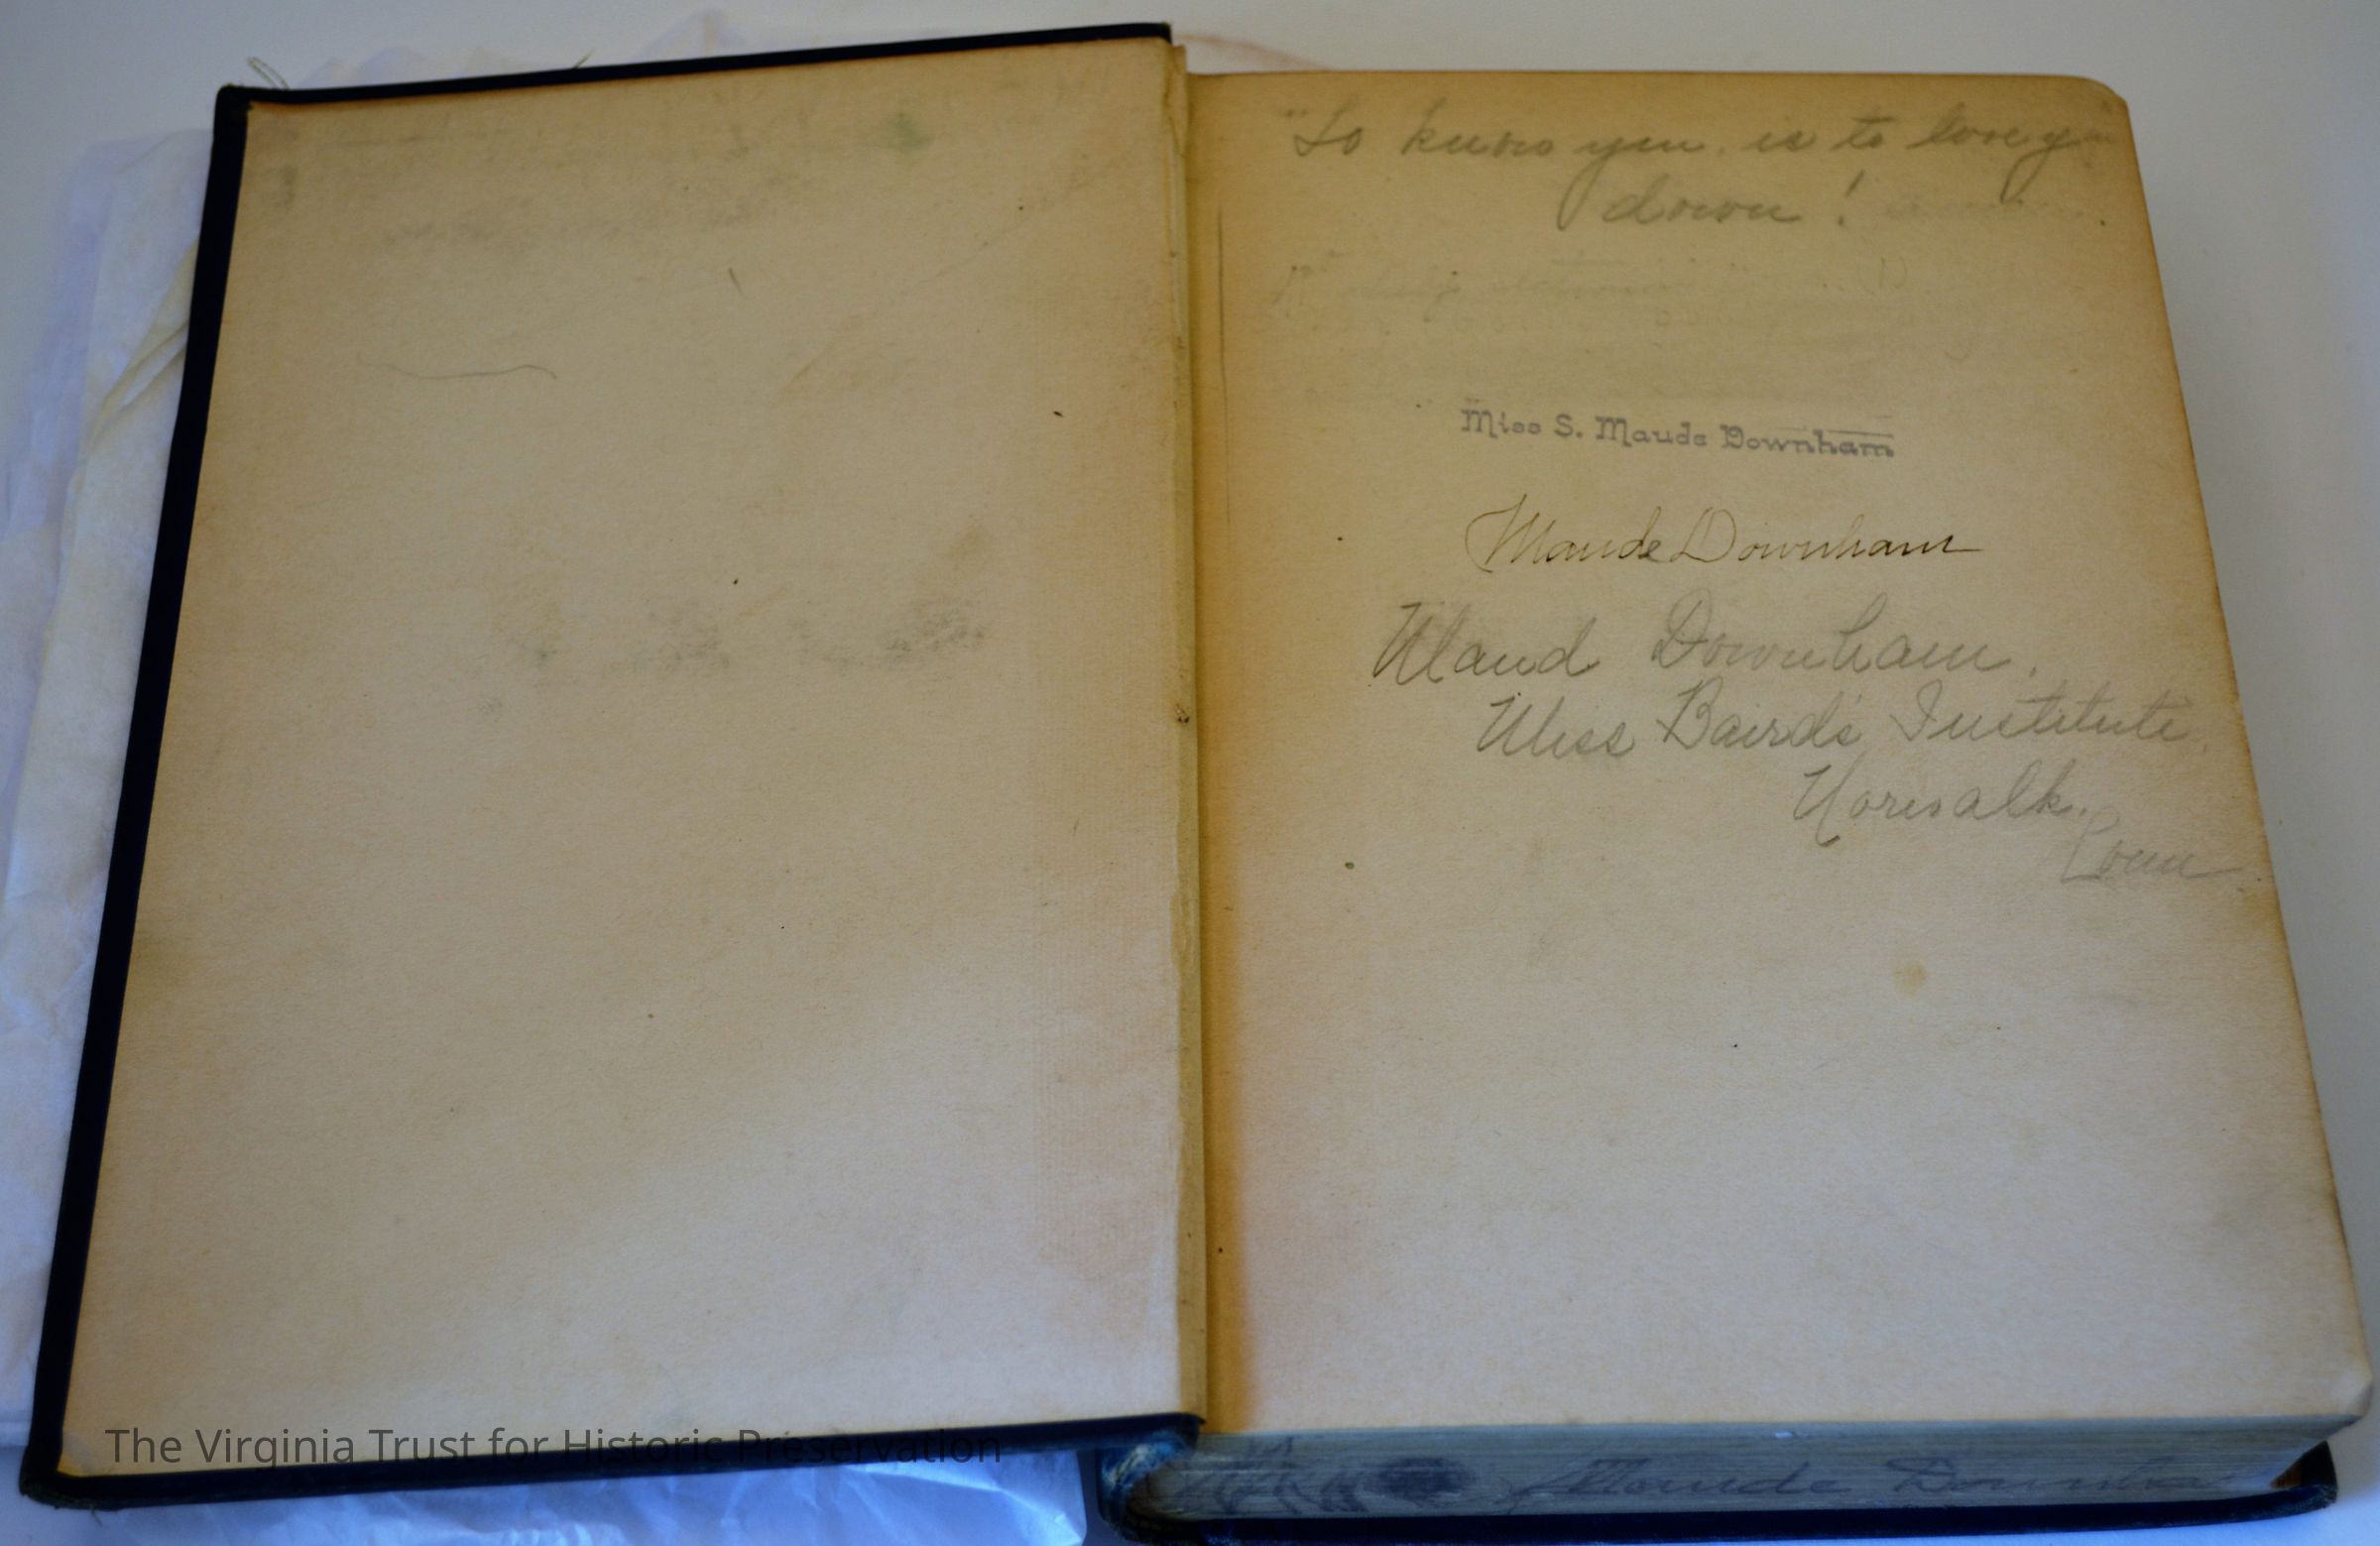 "To know you is to love you
down!
Miss S. Maude Downham
Maude Downham
Maud Downham.
Miss Baird's Institute,
Norwalk.
Conn
Maude Downham
The Virginia Trust for Historic Preservation